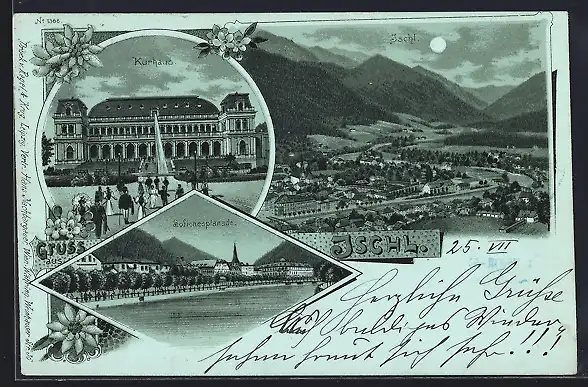 Nr. 1366
Kurhaus
Ischl.
Sofienesplanade
GRUSS
AUS
ISCHL.
25. VII
Herzliche Grüße
Auf baldiges Wieder
sehen freut sich sehr!!!